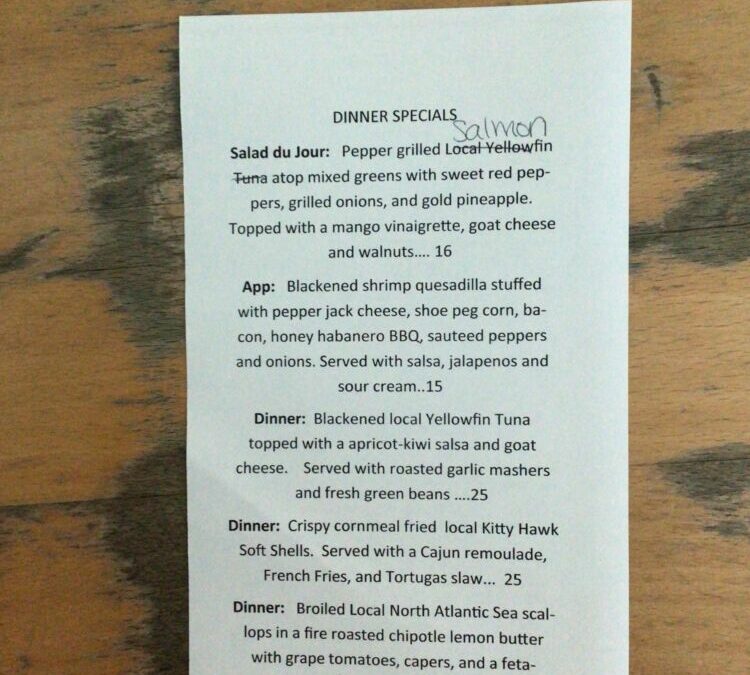 DINNER SPECIALS
Salmon
Salad du Jour: Pepper grilled Local Yellowfin
Tuna atop mixed greens with sweet red pep-
pers, grilled onions, and gold pineapple.
Topped with a mango vinaigrette, goat cheese
and walnuts.... 16
App: Blackened shrimp quesadilla stuffed
with pepper jack cheese, shoe peg corn, ba-
con, honey habanero BBQ, sauteed peppers
and onions. Served with salsa, jalapenos and
sour cream..15
Dinner: Blackened local Yellowfin Tuna
topped with a apricot-kiwi salsa and goat
cheese. Served with roasted garlic mashers
and fresh green beans ....25
Dinner: Crispy cornmeal fried local Kitty Hawk
Soft Shells. Served with a Cajun remoulade,
French Fries, and Tortugas slaw... 25
Dinner: Broiled Local North Atlantic Sea scal-
lops in a fire roasted chipotle lemon butter
with grape tomatoes, capers, and a feta-